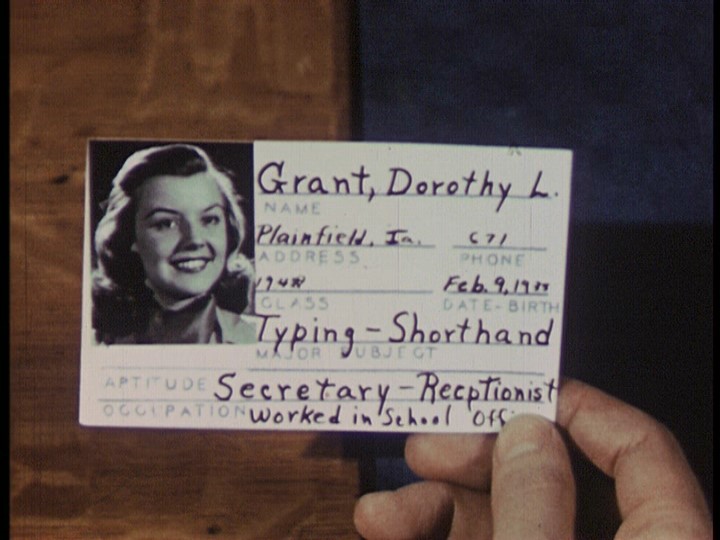 Grant, Dorothy L.
NAME
Plainfield, Ia. 671
ADDRESS PHONE
1948 Feb. 9, 19
CLASS DATE-BIRTH
Typing-Shorthand
MAJOR SUBJECT
APTITUDE Secretary-Recptionist
OCCUPATION Worked in School Off